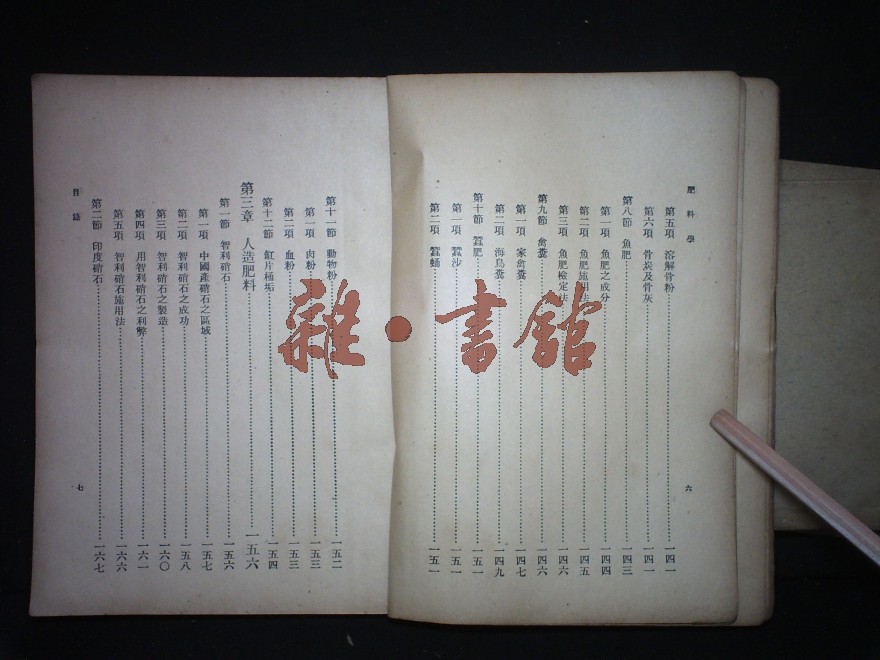 肥料學
第五項 溶解骨粉 一四一
第六項 骨炭及骨灰 一四一
第八節 魚肥 一四三
第一項 魚肥之成分 一四四
第二項 魚肥施用法 一四五
第三項 魚肥檢定法 一四六
第九節 禽糞 一四六
第一項 家禽糞 一四七
第二項 海鳥糞 一四九
第十節 蠶肥 一五一
第一項 蠶沙 一五一
第二項 蠶蛹 一五一
六
第十一節 動物粉 一五二
第一項 肉粉 一五三
第二項 血粉 一五三
第十二節 缸片桶垢 一五四
第三章 人造肥料 一五六
第一節 智利硝石 一五六
第一項 中國產硝石之區域 一五七
第二項 智利硝石之成功 一五八
第三項 智利硝石之製造 一六〇
第四項 用智利硝石之利弊 一六一
第五項 智利硝石施用法 一六六
第二節 印度硝石 一六七
目錄
七
雜·書館